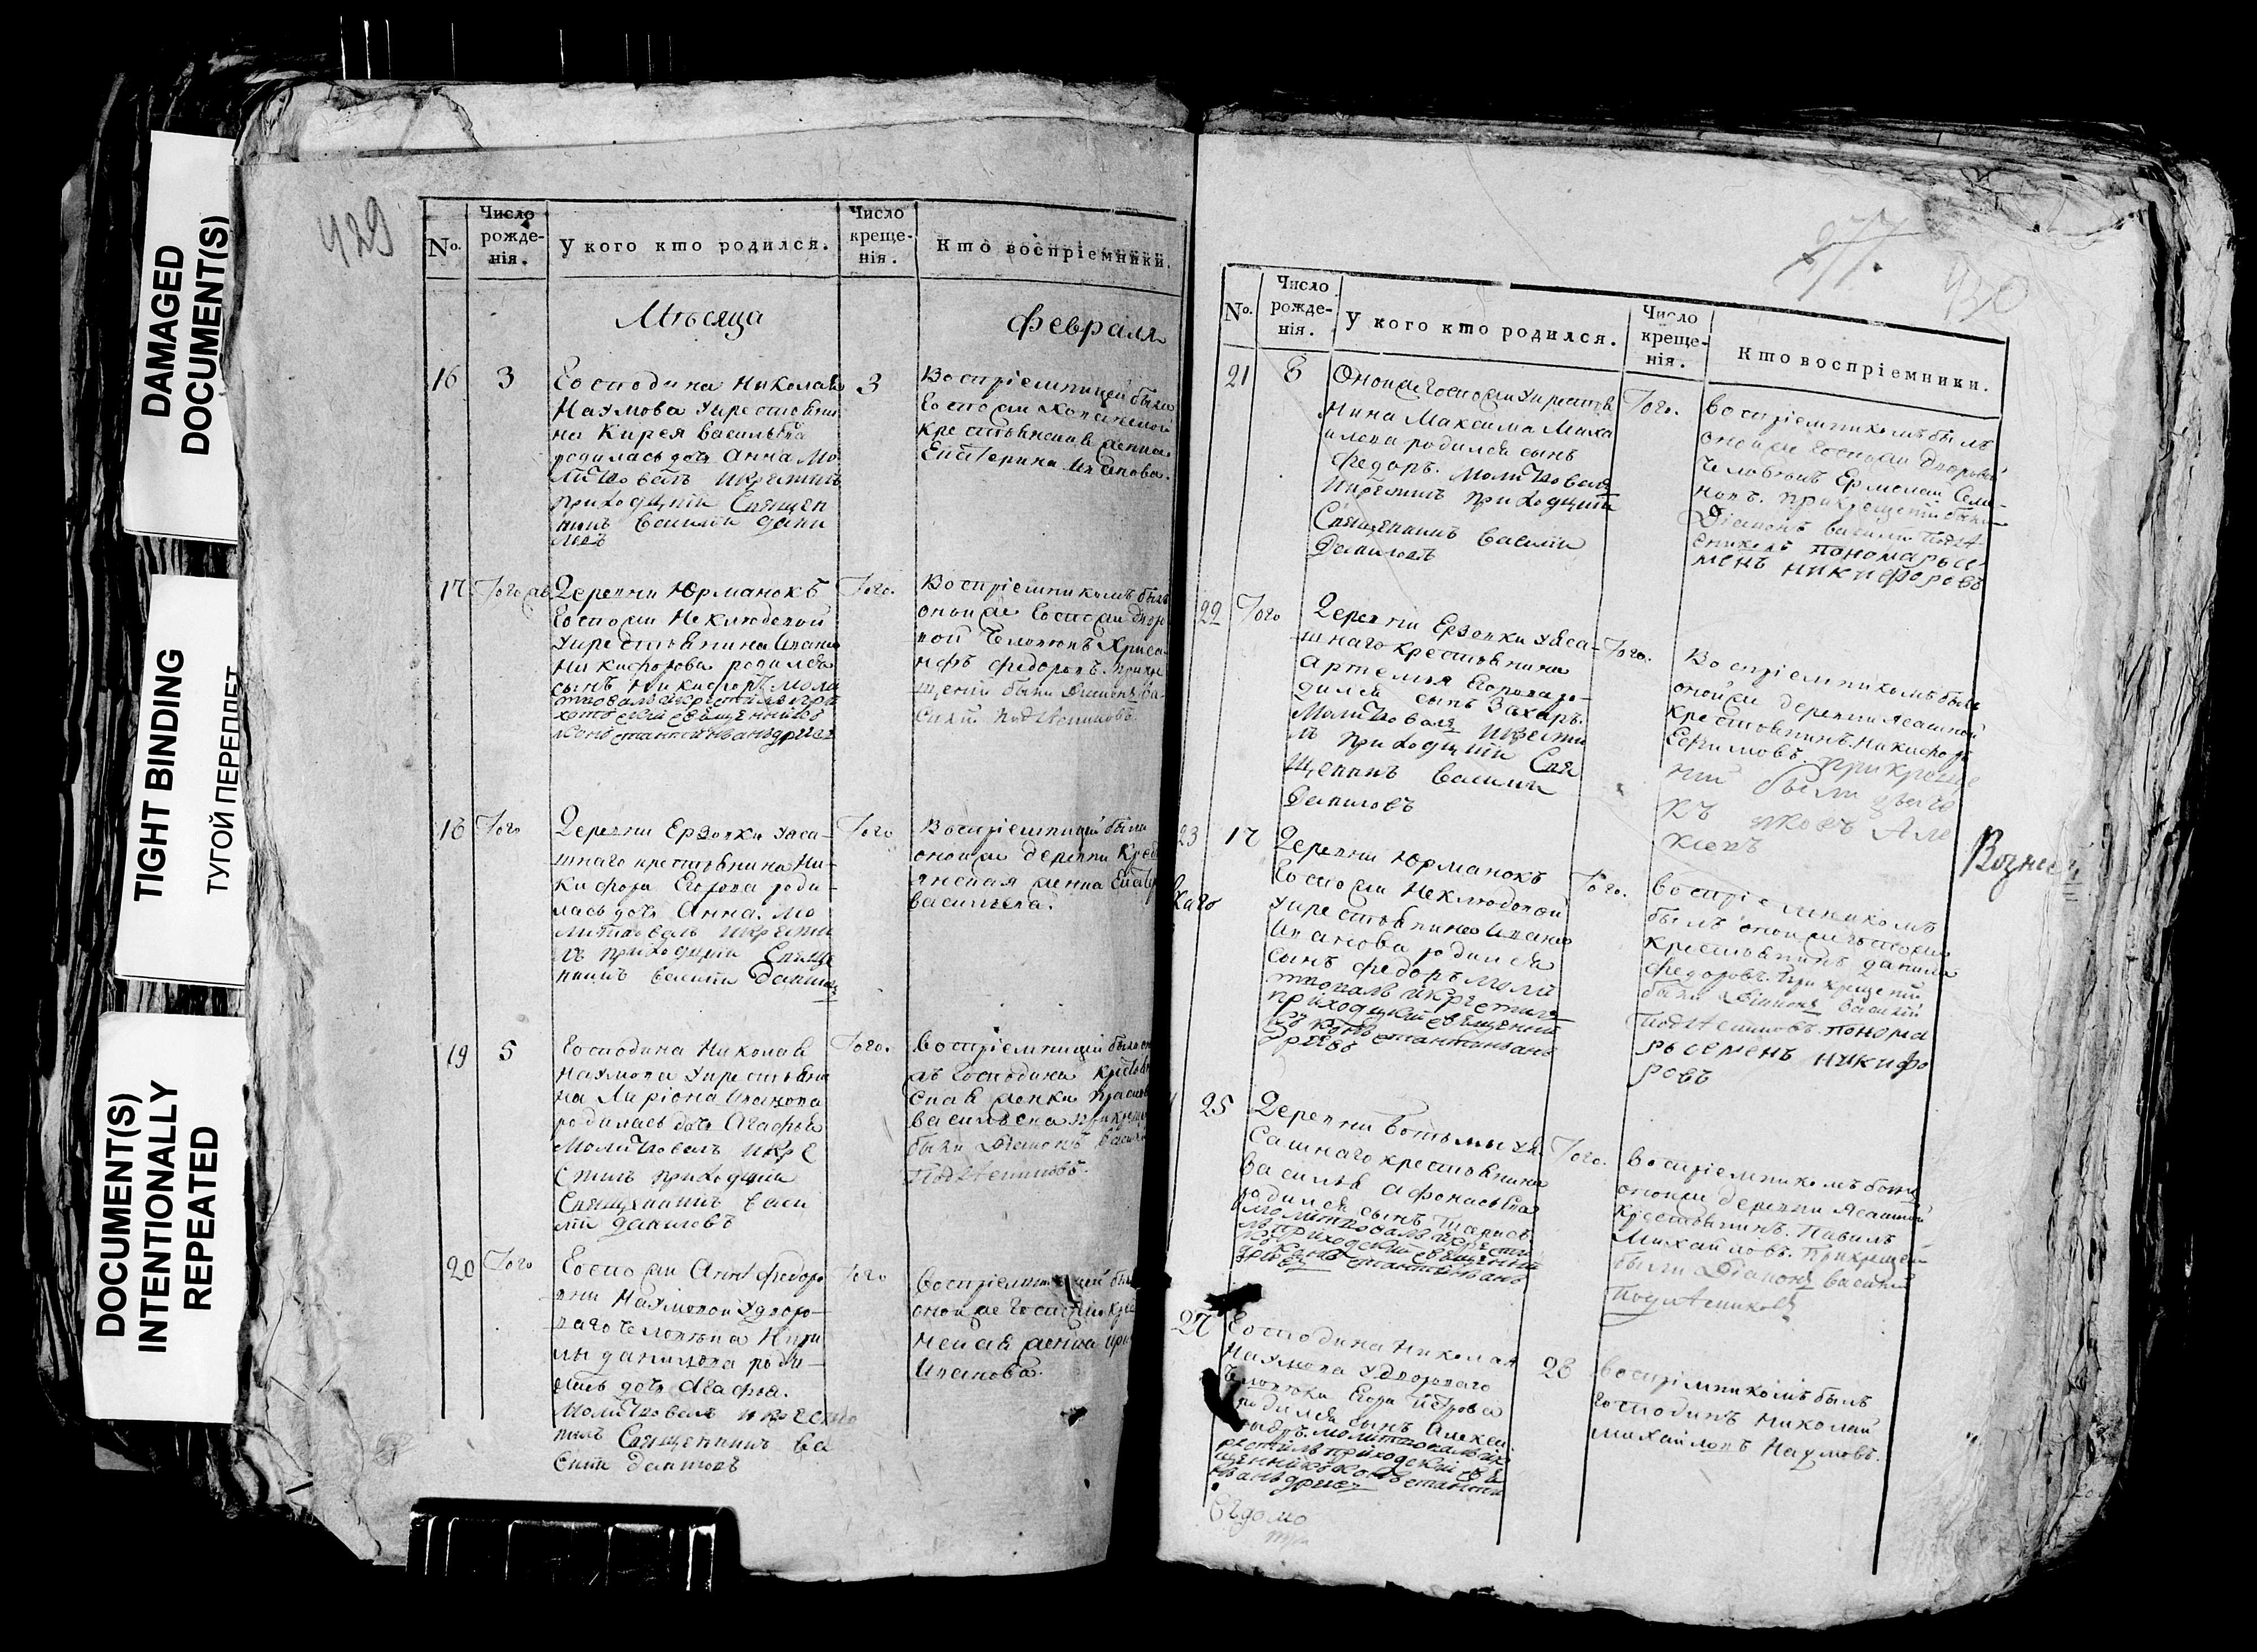 DAMAGED
DOCUMENT(S)
TIGHT BINDING
ТУГОЙ ПЕРЕПЛЕТ
DOCUMENT(S)
INTENTIONALLY
REPEATED
429
No.
Число
рожде-
нія.
У кого кто родился.
Число
креще-
нія.
Кто воспріемники.
Мѣсяца
Февраля
16
3
Господина Николая
Наумова укрестьяни
на Кирея васильева
родилась дочь Анна мо
литвовалъ икрестилъ
приходцкій Священ
никъ василій дани
ловъ
3
Воспріемницей была
Госпожи
крестьянская женка
Екатерина иванова.
17
Тогож
Деревни Юрманокъ
Госпожи Неклюдовой
укрестьянина ивана
Никифорова родился
сынъ Никифоръ моли
твовалъ икрестилъ при
ходской священникъ
константинъ андреев
Того.
Воспріемникомъ былъ
оной же Госпожи дворо
вой человѣкъ Хриса
нфъ федоровъ. при кре
щеніи были Діаконъ ва-
силій
18
Того
Деревни Ерзовки уяса-
шнаго крестьянина Ни-
кифора Егорова роди-
лась дочь Анна. мо
литвовалъ икрести
лъ приходцкій Свяще
никъ василій Данилов
Того
Воспріемницей была
оной же деревни крест
янская женка Екатер
васильева.
19
5
Господина Николая
Наумова укрестьяни
на Ларіона иванова
родилась дочь Агафья
Молитвовалъ икре
стилъ приходцкій
Священникъ васи
лій даниловъ
Того.
Воспріемницей была он
лъ Господина крестьян
ская женка
васильева при креще
были Діаконъ василій
20
Того
Госпожи Анны федоро
вны Наумовой удворо-
ваго человѣка Кири
лы данилова роди-
лась дочь Агафья.
Молитвовалъ икрести
лъ Священникъ ва
силій даниловъ
Того
воспріемницей была
оной же Госпожи кре
женка
иванова.
277.
430
No.
Число
рожде-
нія.
У кого кто родился.
Число
креще-
нія.
Кто воспріемники.
21
8
Оной же Госпожи укрестья
нина Максима Миха
илова родился сынъ
Федоръ. молитвовалъ
икрестилъ приходцкій
Священникъ василій
Даниловъ
Того.
воспріемникомъ былъ
оной же Госпожи дворовой
человѣкъ Ермолай Семе-
новъ. прикрещеніи были
Діаконъ василій
пономарь се
менъ никифоровъ
22
Того
Деревни Ерзовки уяса-
шнаго крестьянина
Артемья Егорова ро-
дился сынъ Захаръ.
Молитвовалъ икрести
лъ приходцкій Свя
щенникъ василій
Даниловъ
Того.
Воспріемникомъ былъ
оной же деревни ясашной
крестьянинъ Никифоръ
Ефимовъ. прикреще
ніи были дьяче
къ яковъ Але
23
17
Деревни Юрманокъ
Госпожи Неклюдовой
укрестьянина ивана
иванова родился
сынъ федоръ моли
твовалъ икрестилъ
приходцкій священни
къ константинъ ан
дрѣевъ
Того.
Воспріемникомъ
былъ оной же госпожи
крестьянинъ данила
федоровъ. При крещеніи
были діаконъ василій
понома
рь семенъ никифо
ровъ
25
Деревни Ботьмы уя
сашнаго крестьянина
василья афонасьева
родился сынъ
молитвовалъ икрести
лъ приходскій священни
къ константинъ ан
дрѣев
Того.
воспріемникомъ былъ
оной же деревни ясашной
крестьянинъ. Павелъ
Михайловъ. прикрещен
были Діаконъ василій
27
Господина николая
Наумова удвороваго
человѣка Егора Петрова
родился сынъ Алексѣ
молитвовалъ ик
рестилъ приходскій свя
щенникъ константи
нъ андрѣев
28
воспріемникомъ былъ
Господинъ Николай
михайловъ Наумовъ.